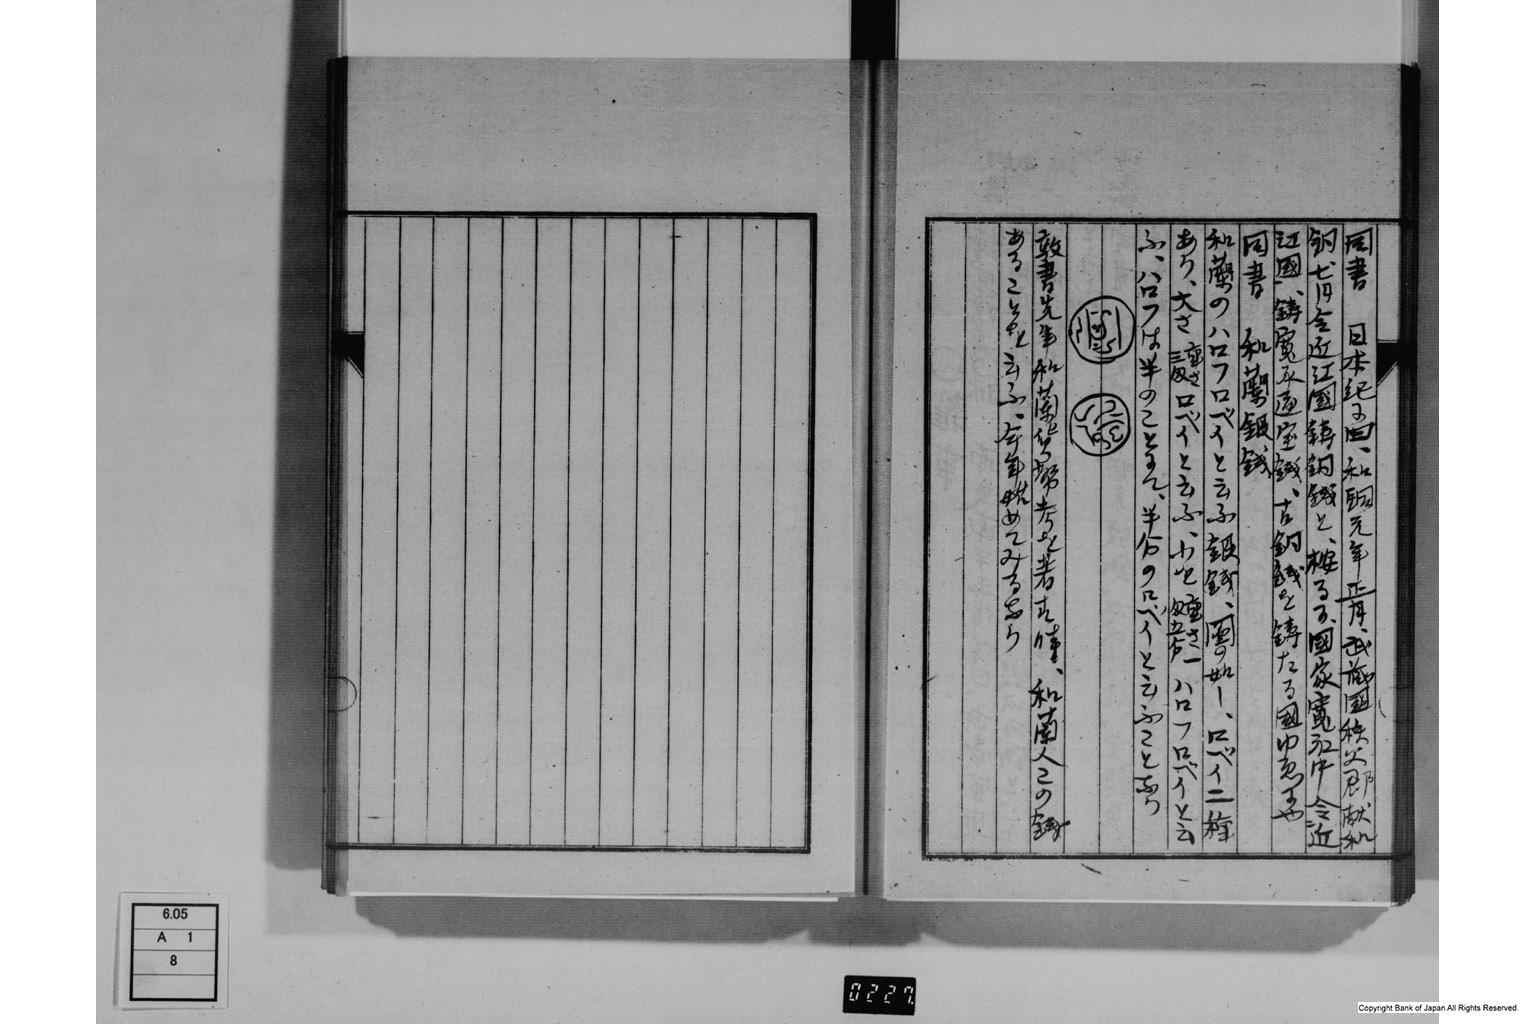 同書 日本紀ニ曰、和銅元年正月、武蔵國秩父郡献和
銅、七月令近江國鋳銅銭と、按るに、國家寛永中令近
江國、鋳寛永通宝銭、古銅銭を鋳たる國ゆゑにや
同書 和蘭銀銭
和蘭のハロフロペイと云ふ銀銭、圖の如し、ロペイ二種
あり、大さ 重さ三匁 ロペイと云ふ、小を 重さ一匁五分 ハロフロペイと云
ふ、ハロフは半のことにて、半分のロペイと云ふことなり
敦書先年和蘭貨幣考を著す時、和蘭人この銭
あることを云ふ、今年始めてみるなり
6.05
A 1
8
0227
Copyright Bank of Japan All Rights Reserved.